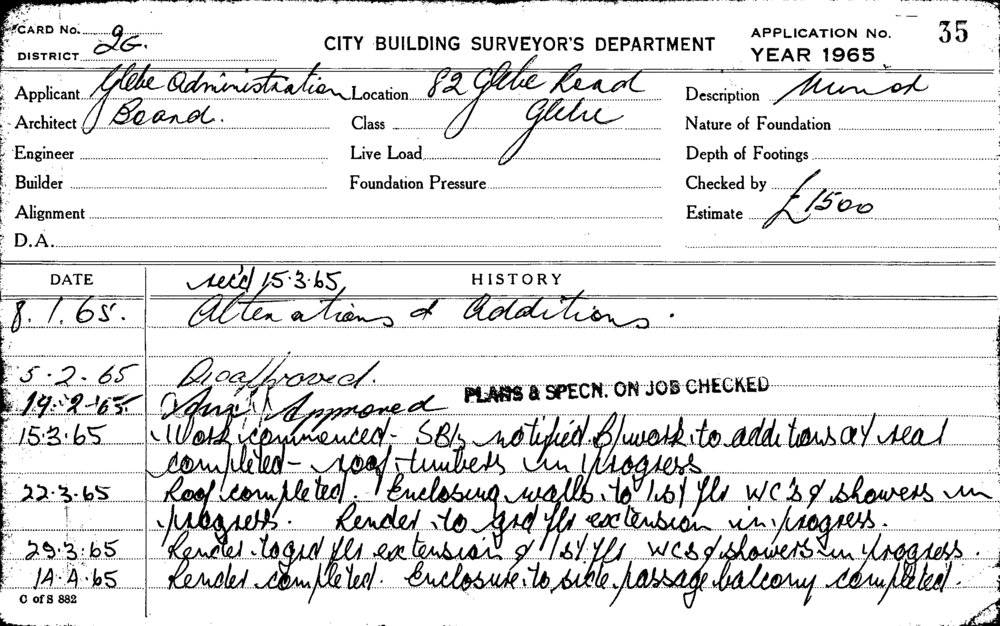 CARD No.
2G.
DISTRICT
CITY BUILDING SURVEYOR'S DEPARTMENT
APPLICATION No. 35
YEAR 1965
Applicant Glebe Administration
Location 82 Glebe Road
Description Minor
Architect Board.
Class Glebe
Nature of Foundation
Engineer
Live Load
Depth of Footings
Builder
Foundation Pressure
Checked by
Alignment
Estimate £1500
D.A.
DATE
rec'd 15.3.65
HISTORY
8.1.65. Alterations & Additions.
5.2.65 Disapproved.
19.2.65. Approved
PLANS & SPECN. ON JOB CHECKED
15.3.65 Work commenced - notified B/work to additions at rear
completed - roof timbers in progress
22.3.65 Roof completed. Enclosing walls to 1st flr WC's & showers in
progress. Render to grd flr extension in progress.
29.3.65 Render to grd flr extension & 1st flr WCs & showers in progress.
14.4.65 Render completed. Enclosure to side passage balcony completed.
C of S 882